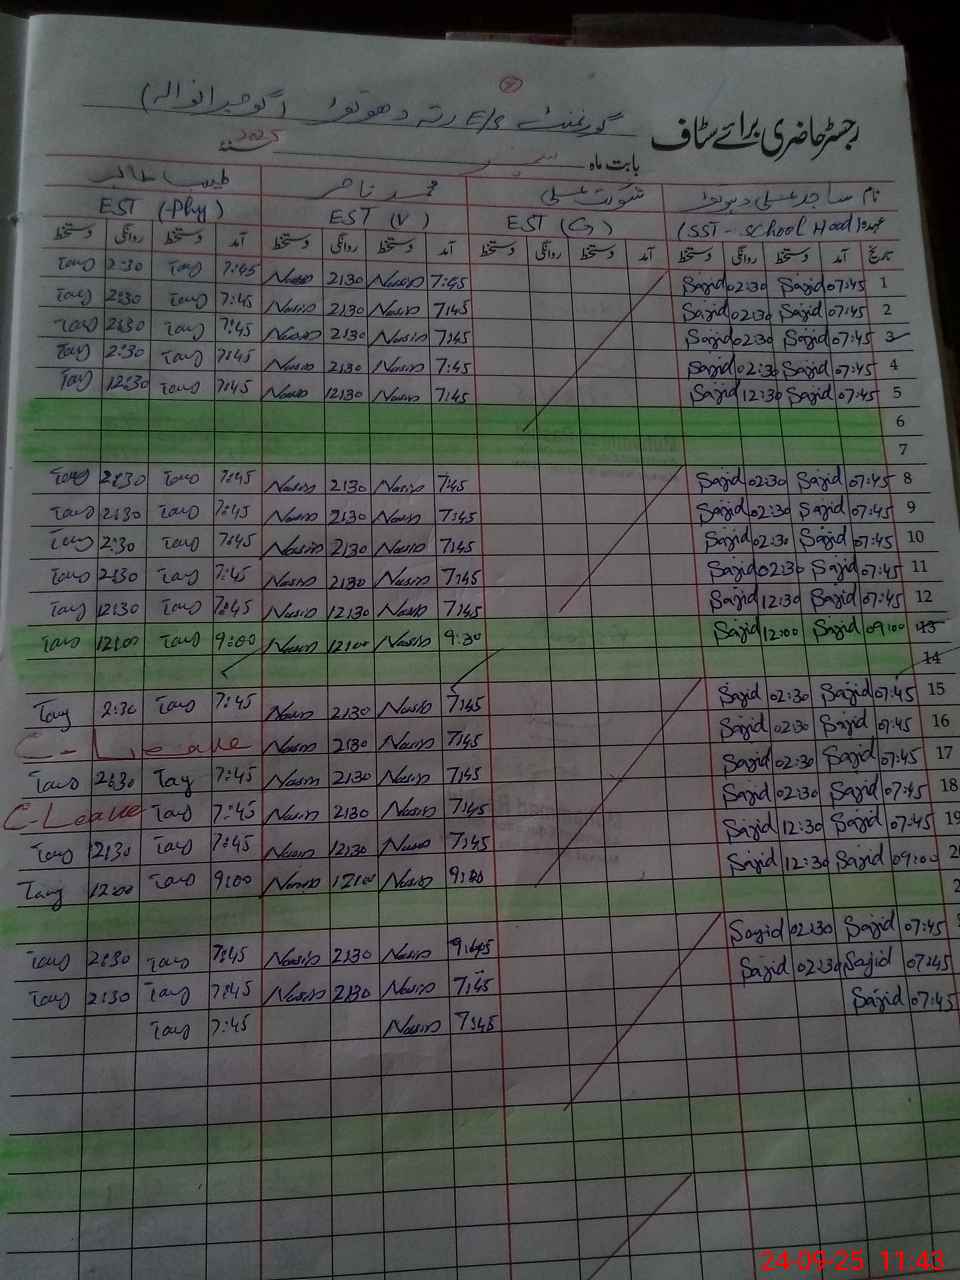 رجسٹر حاضری برائے سٹاف
گورنمنٹ E/S رتہ دھوتڑ (گوجرانوالہ)
بابت ماہ ستمبر 2025
نام ساجد علی شوکت علی محمد ناصر
عہدہ (SST - School Head) EST (G) EST (V) EST (Phy)
تاریخ آمد دستخط روانگی دستخط آمد دستخط روانگی دستخط آمد دستخط روانگی دستخط آمد دستخط روانگی دستخط
1 07:45 Sajid 02:30 Sajid 7:45 Nasir 2:30 Nasir 7:45 2:30
2 07:45 Sajid 02:30 Sajid 7:45 Nasir 2:30 Nasir 7:45 2:30
3 07:45 Sajid 02:30 Sajid 7:45 Nasir 2:30 Nasir 7:45 2:30
4 07:45 Sajid 02:30 Sajid 7:45 Nasir 2:30 Nasir 7:45 2:30
5 07:45 Sajid 12:30 Sajid 7:45 Nasir 12:30 Nasir 7:45 12:30
6
7
8 07:45 Sajid 02:30 Sajid 7:45 Nasir 2:30 Nasir 7:45 2:30
9 07:45 Sajid 02:30 Sajid 7:45 Nasir 2:30 Nasir 7:45 2:30
10 07:45 Sajid 02:30 Sajid 7:45 Nasir 2:30 Nasir 7:45 2:30
11 07:45 Sajid 02:30 Sajid 7:45 Nasir 2:30 Nasir 7:45 2:30
12 07:45 Sajid 12:30 Sajid 7:45 Nasir 12:30 Nasir 7:45 12:30
13 09:00 Sajid 12:00 Sajid 9:30 Nasir 12:00 Nasir 9:00 12:00
14
15 07:45 Sajid 02:30 Sajid 7:45 Nasir 2:30 Nasir 7:45 2:30
16 07:45 Sajid 02:30 Sajid 7:45 Nasir 2:30 Nasir C-Leave
17 07:45 Sajid 02:30 Sajid 7:45 Nasir 2:30 Nasir 7:45 2:30
18 07:45 Sajid 02:30 Sajid 7:45 Nasir 2:30 Nasir 7:45 C-Leave
19 07:45 Sajid 12:30 Sajid 7:45 Nasir 12:30 Nasir 7:45 12:30
09:00 Sajid 12:30 Sajid 9:00 Nasir 12:00 Nasir 9:00 12:00
07:45 Sajid 02:30 Sajid Nasir 2:30 Nasir 7:45 2:30
07:45 Sajid 02:30 Sajid 7:45 Nasir 2:30 Nasir 7:45 2:30
07:45 Sajid 7:45 Nasir 7:45
24-09-25 11:43